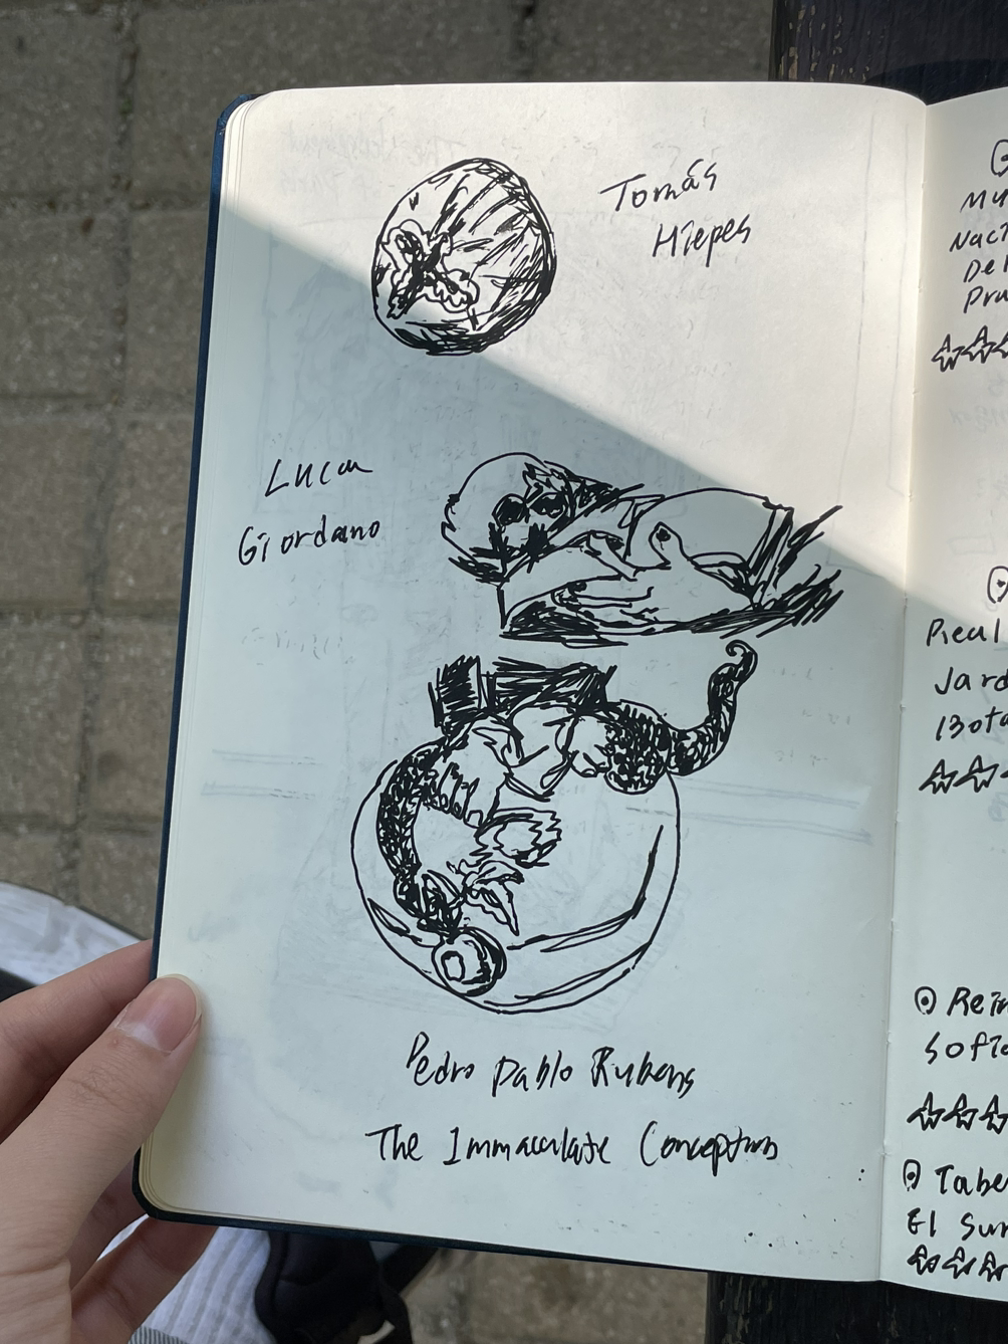 Tomás
Hiepes
Luca
Giordano
Pedro Pablo Rubens
The Immaculate Conception
Mu
Naci
Del
Pra
Real
Jard
Bota
Rein
Sofia
Tabe
El Sur